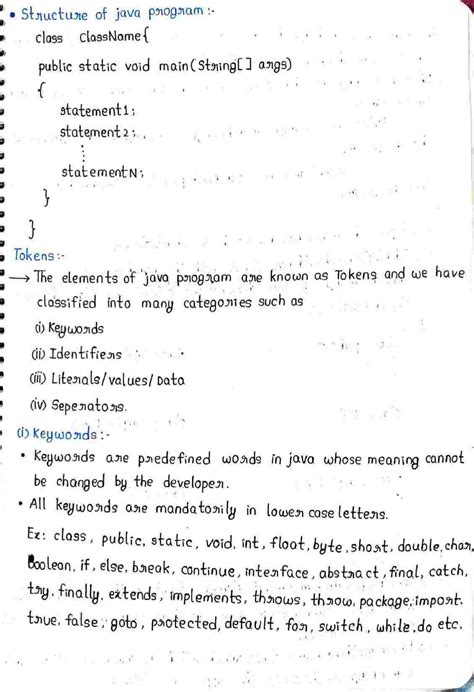 • Structure of java program :-
class ClassName {
public static void main(String[] args)
{
statement1;
statement2;
⋮
statementN;
}
}
Tokens :-
→ The elements of java program are known as Tokens and we have
classified into many categories such as
(i) Keywords
(ii) Identifiers
(iii) Literals/values/Data
(iv) Seperators.
(i) Keywords :-
• Keywords are predefined words in java whose meaning cannot
be changed by the developer.
• All keywords are mandatorily in lower case letters.
Ex: class, public, static, void, int, float, byte, short, double, char,
Boolean, if, else, break, continue, interface, abstract, final, catch,
try, finally, extends, implements, throws, throw, package, import.
true, false, goto, protected, default, for, switch, while.do etc.